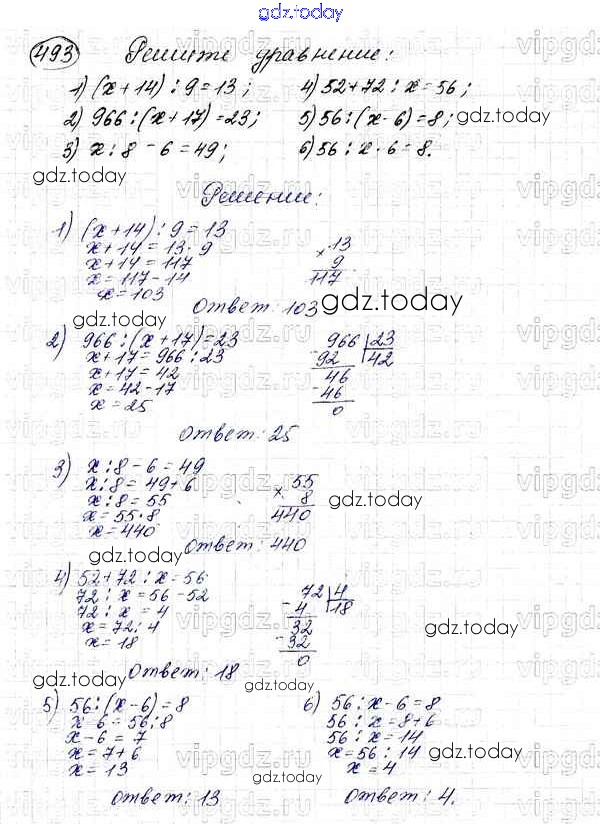 gdz.today
493 Решите уравнение:
1) (x+14) : 9 = 13; 4) 52 + 72 : x = 56;
2) 966 : (x + 17) = 23; 5) 56 : (x - 6) = 8; gdz.today
3) x : 8 - 6 = 49; 6) 56 : x - 6 = 8.
gdz.today
Решение:
1) (x+14) : 9 = 13
x + 14 = 13 · 9
x + 14 = 117
x = 117 - 14
x = 103
× 13
9
117
Ответ: 103 gdz.today
gdz.today
2) 966 : (x + 17) = 23
x + 17 = 966 : 23
x + 17 = 42
x = 42 - 17
x = 25
966 | 23
- 92 | 42
46
- 46
0
Ответ: 25
3) x : 8 - 6 = 49
x : 8 = 49 + 6
x : 8 = 55
x = 55 · 8
x = 440
× 55
8
440
gdz.today
Ответ: 440
gdz.today
4) 52 + 72 : x = 56
72 : x = 56 - 52
72 : x = 4
x = 72 : 4
x = 18
72 | 4
- 4 | 18
32
- 32
0
gdz.today
Ответ: 18
gdz.today
gdz.today
5) 56 : (x - 6) = 8
x - 6 = 56 : 8
x - 6 = 7
x = 7 + 6
x = 13
Ответ: 13
6) 56 : x - 6 = 8
56 : x = 8 + 6
56 : x = 14
x = 56 : 14
x = 4
gdz.today
gdz.today
Ответ: 4.
vipgdz.ru